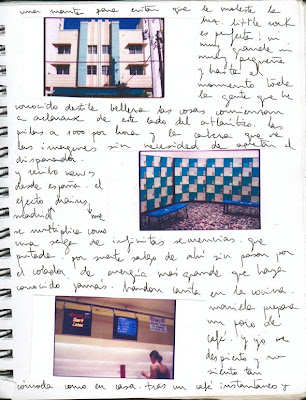 una manta para evitar que le moleste la
luz. little rock
es perfecta: ni
muy grande ni
muy pequeña
y hasta el
momento toda
la gente que he
conocido destila belleza. las cosas comienzan
a aclararse de este lado del atlántico. las
pilas a 1000 por hora y la cabeza que ve
las imágenes sin necesidad de apretar el
disparador.
y recibo
desde españa. el
efecto
madrid me
se multiplica como
una selva de infinitas
que por suerte salgo de ahí sin pasar por
el colador de energía más grande que haya
conocido jamás. brandon canta en la cocina.
mariela prepara
un poco de
café. y yo me
despierto y me
siento tan
cómoda como en casa. tras un café instantáneo y